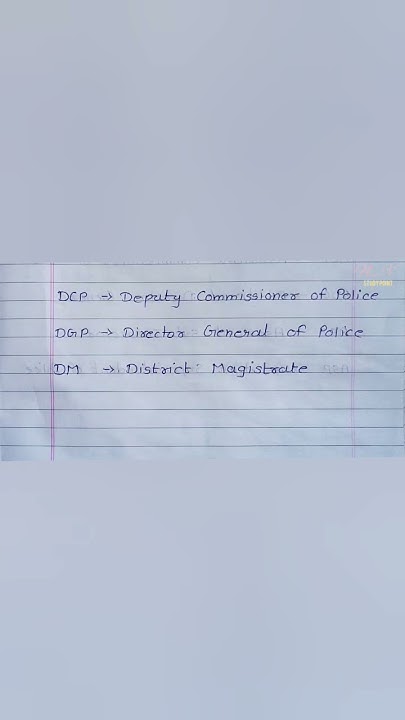 DCP → Deputy Commissioner of Police
DGP → Director General of Police
DM → District Magistrate